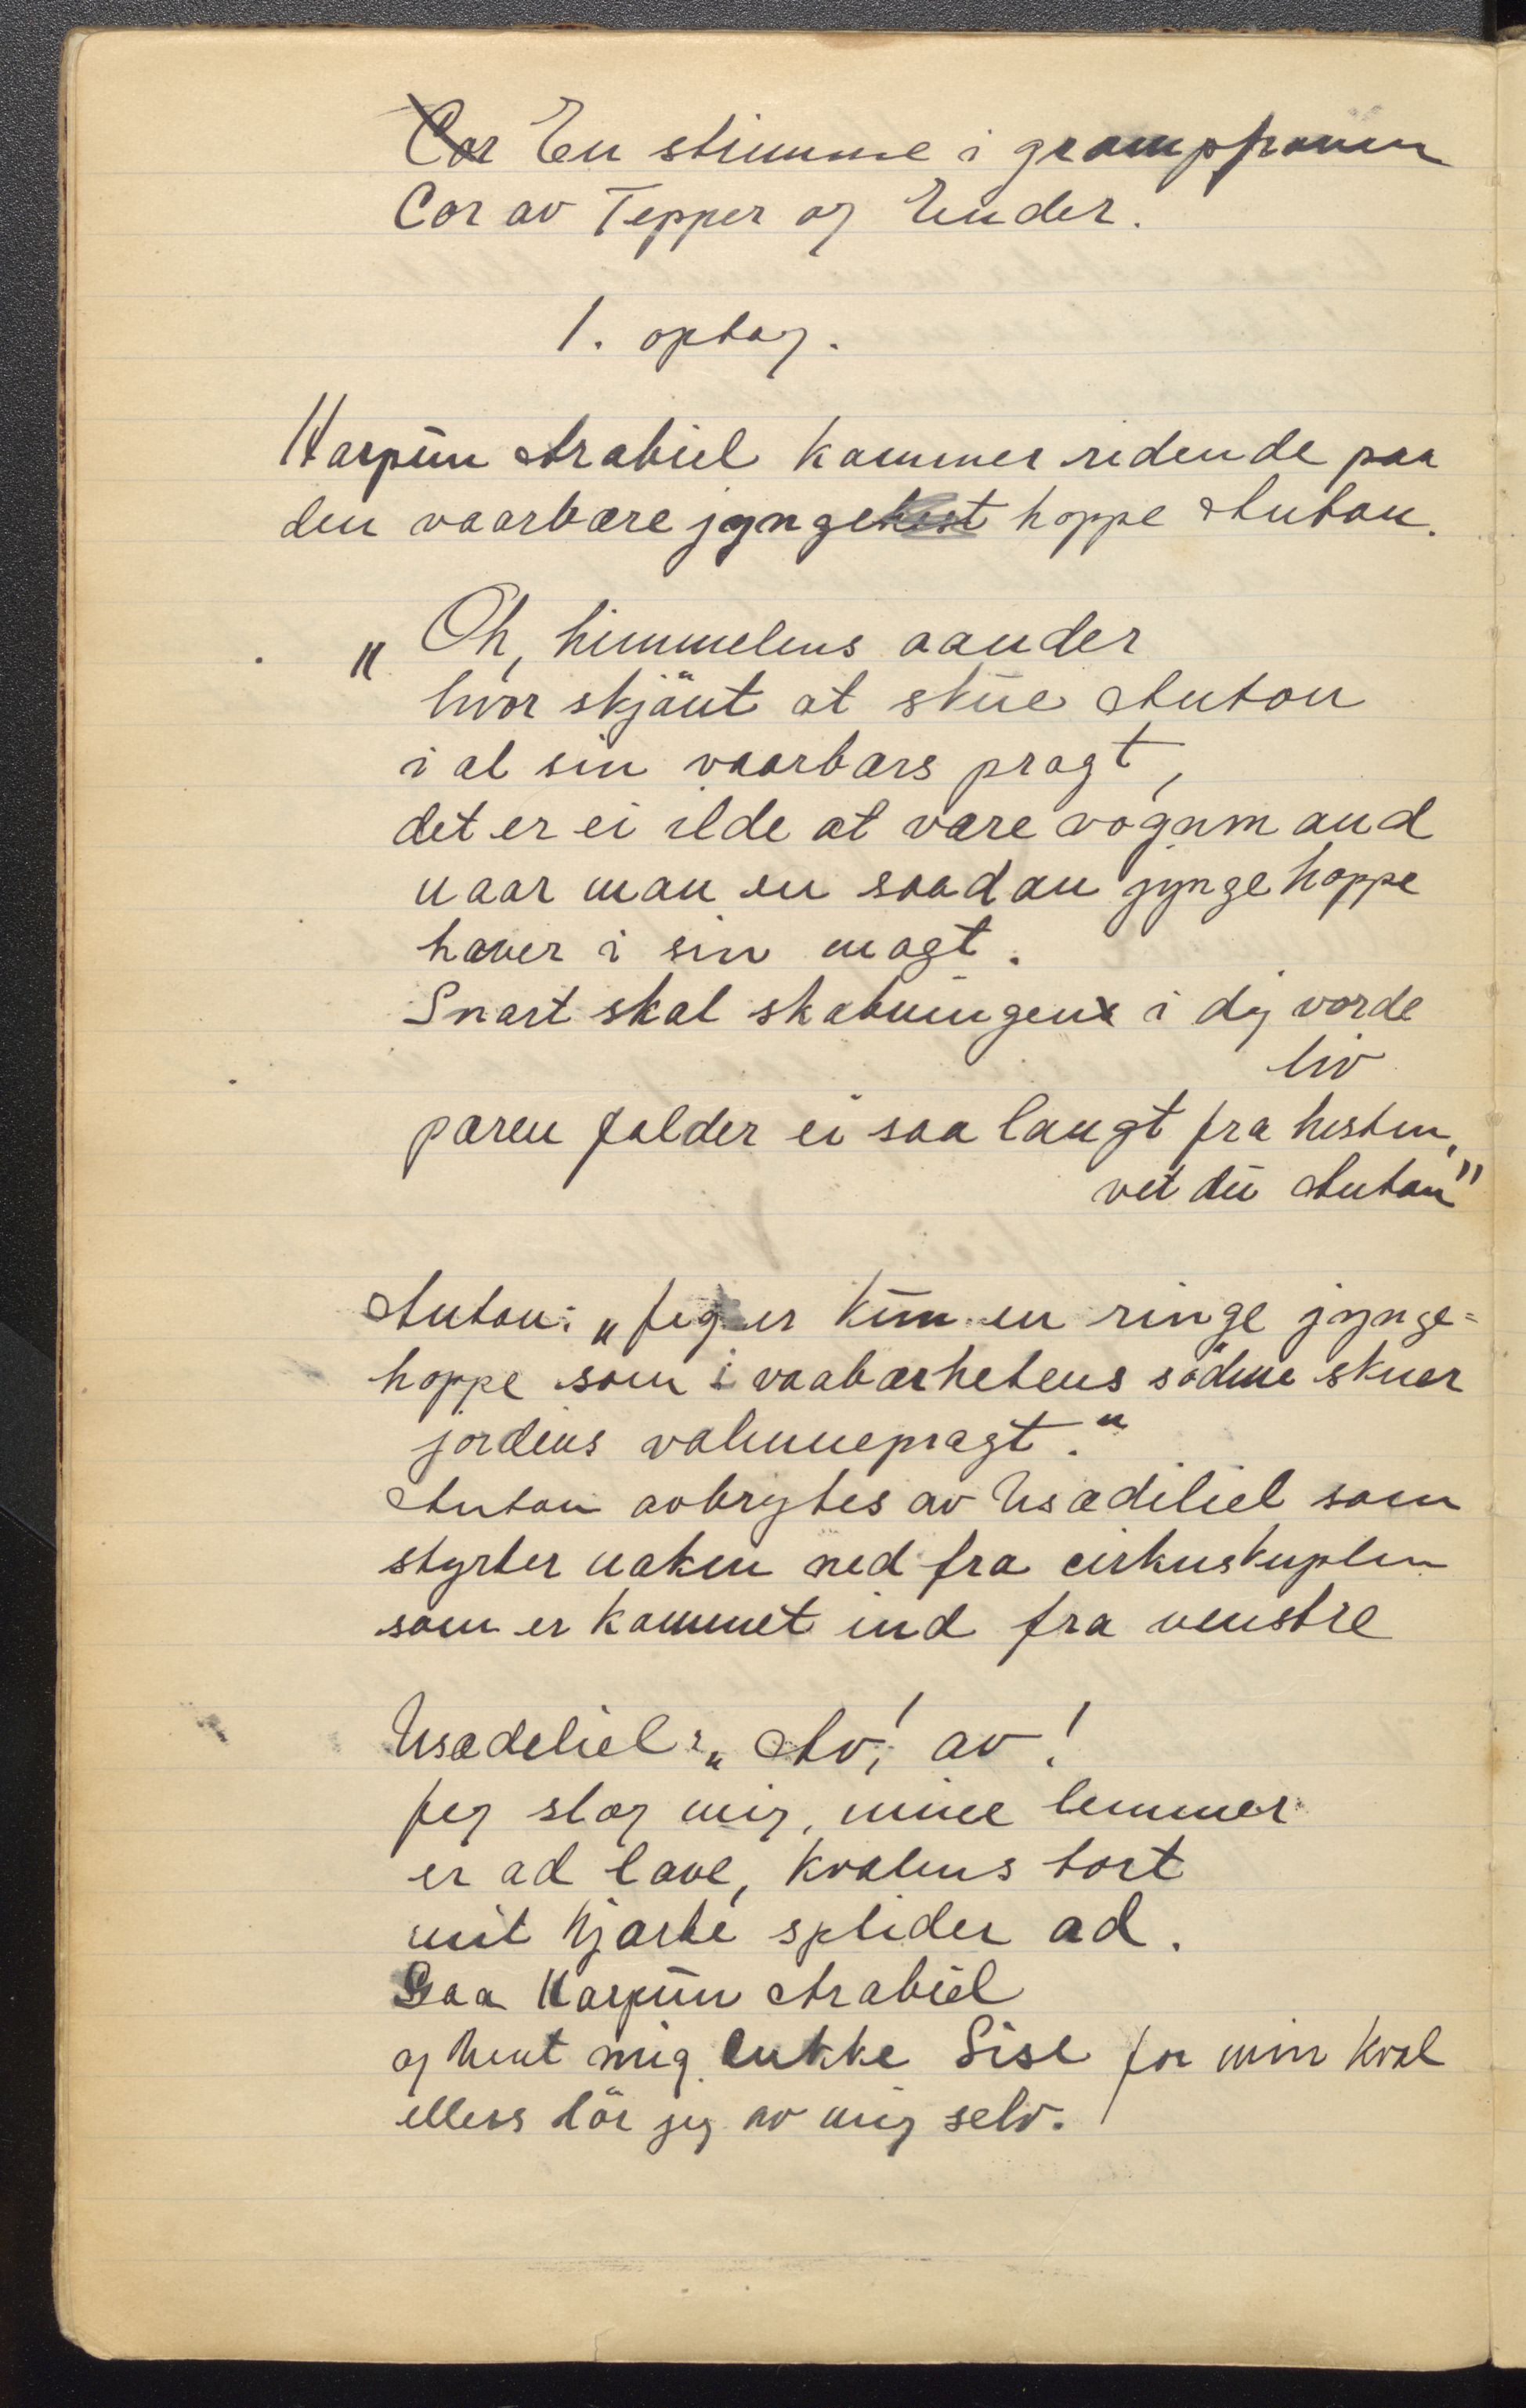 Cor En stimme i grampfonen
Cor av Tepper og Ender.
1. optog.
Harpun Arabiel kommer ridende paa
den vaarbære jyngehest hoppe Anton.
„Oh, himmelens aander
hvor skjönt at skue Anton
i al sin vaarbærs pragt,
det er ei ilde at være vognmand
naar man en saadan jyngehoppe
haver i sin magt.
Snart skal skabningens i dig vorde
liv
pæren falder ei saa langt fra hesten,
vet du Anton"
Anton: „Jeg er kun en ringe jynge-
hoppe som i vaabærhetens södme skuer
jordens valmuepragt."
Anton avbrytes av Usædeliel som
styrter naken ned fra cirkuskuplen
som er kommet ind fra venstre
Usædeliel: „Av! av!
Jeg slog mig, mine lemmer
er ad lave, kvalens tort
mit hjærte splider ad.
Gaa Harpun Arabiel
og hent mig lukke Sise for min kval
elless dör jeg av mig selv.